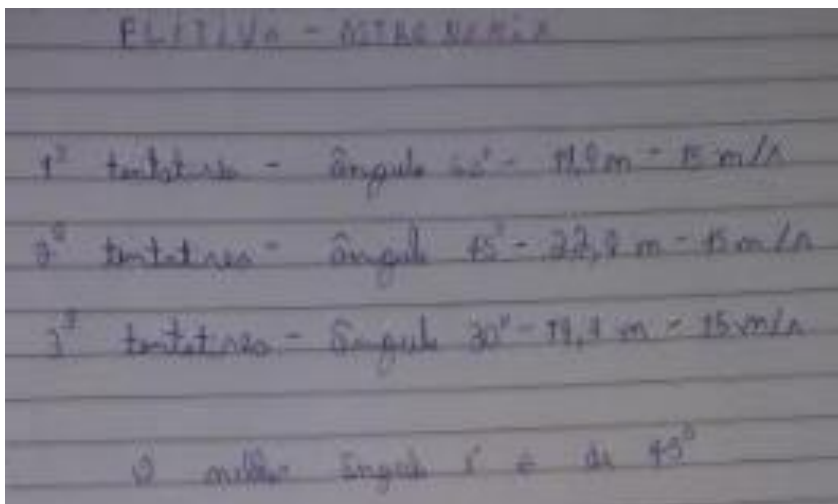 ELETIVA - ASTRONOMIA
1ª tentativa - ângulo 60° - 19,8 m - 15 m/s
2ª tentativa - ângulo 45° - 22,9 m - 15 m/s
3ª tentativa - ângulo 30° - 19,8 m - 15 m/s
O melhor ângulo é de 45°